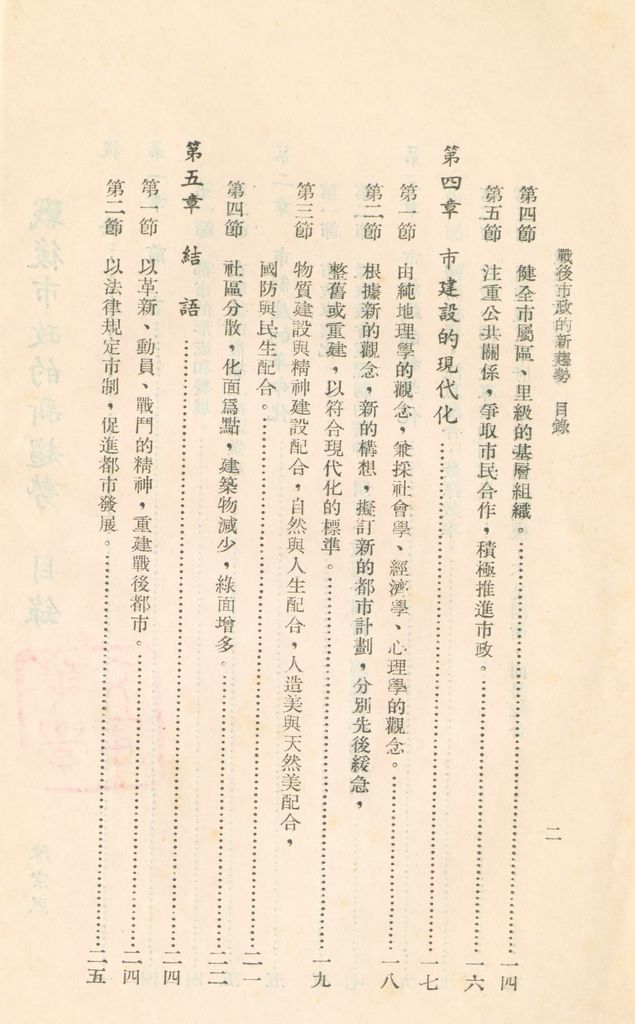 戰後市政的新趨勢　目錄
二
第四節　健全市屬區、里級的基層組織。……一四
第五節　注重公共關係，爭取市民合作，積極推進市政。……一六
第四章　市建設的現代化……一七
第一節　由純地理學的觀念，兼採社會學、經濟學、心理學的觀念。……一八
第二節　根據新的觀念，新的構想，擬訂新的都市計劃，分別先後緩急，
整舊或重建，以符合現代化的標準。……一九
第三節　物質建設與精神建設配合，自然與人生配合，人造美與天然美配合，
國防與民生配合。……二一
第四節　社區分散，化面爲點，建築物減少，綠面增多。……二二
第五章　結　語……二四
第一節　以革新、動員、戰鬥的精神，重建戰後都市。……二四
第二節　以法律規定市制，促進都市發展。……二五